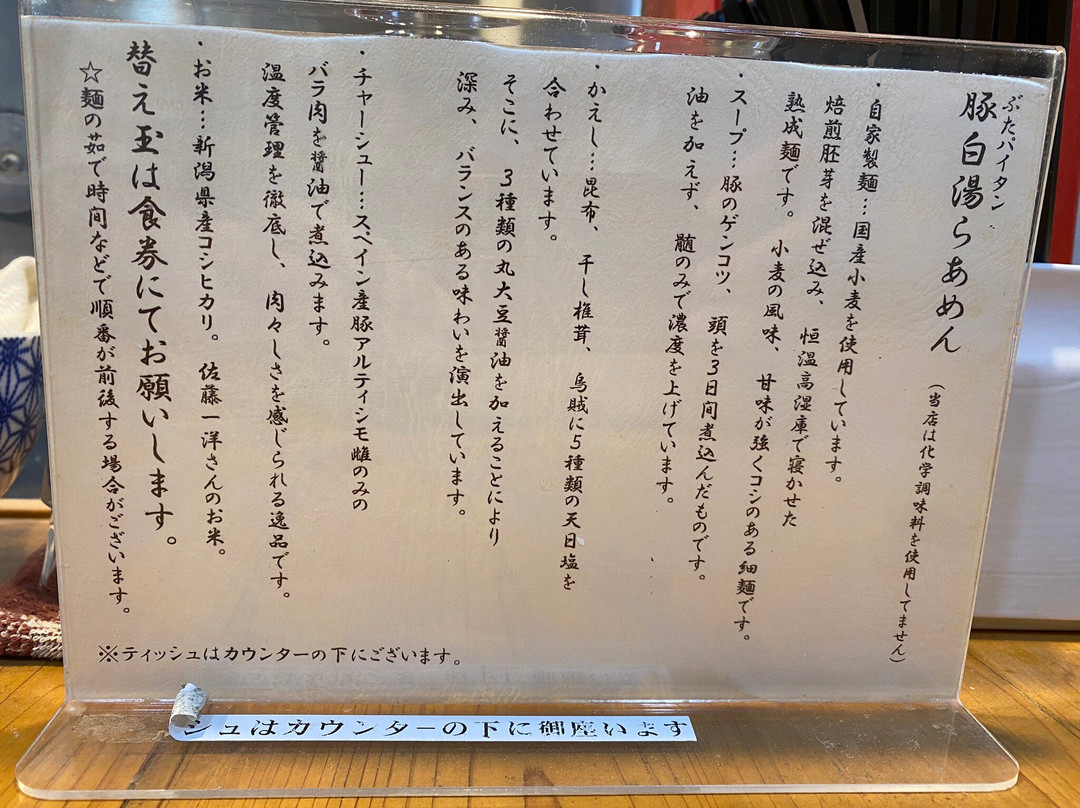 ぶたパイタン
豚白湯らあめん
(当店は化学調味料を使用してません)
・自家製麺…国産小麦を使用しています。
焙煎胚芽を混ぜ込み、恒温高湿庫で寝かせた
熟成麺です。小麦の風味、甘味が強くコシのある細麺です。
・スープ…豚のゲンコツ、頭を3日間煮込んだものです。
油を加えず、髄のみで濃度を上げています。
・かえし…昆布、干し椎茸、烏賊に5種類の天日塩を
合わせています。
そこに、3種類の丸大豆醤油を加えることにより
深み、バランスのある味わいを演出しています。
・チャーシュー…スペイン産豚アルティシモ雌のみの
バラ肉を醤油で煮込みます。
温度管理を徹底し、肉々しさを感じられる逸品です。
・お米…新潟県産コシヒカリ。佐藤一洋さんのお米。
替え玉は食券にてお願いします。
☆麺の茹で時間などで順番が前後する場合がございます。
※ティッシュはカウンターの下にございます。
シュはカウンターの下に御座います